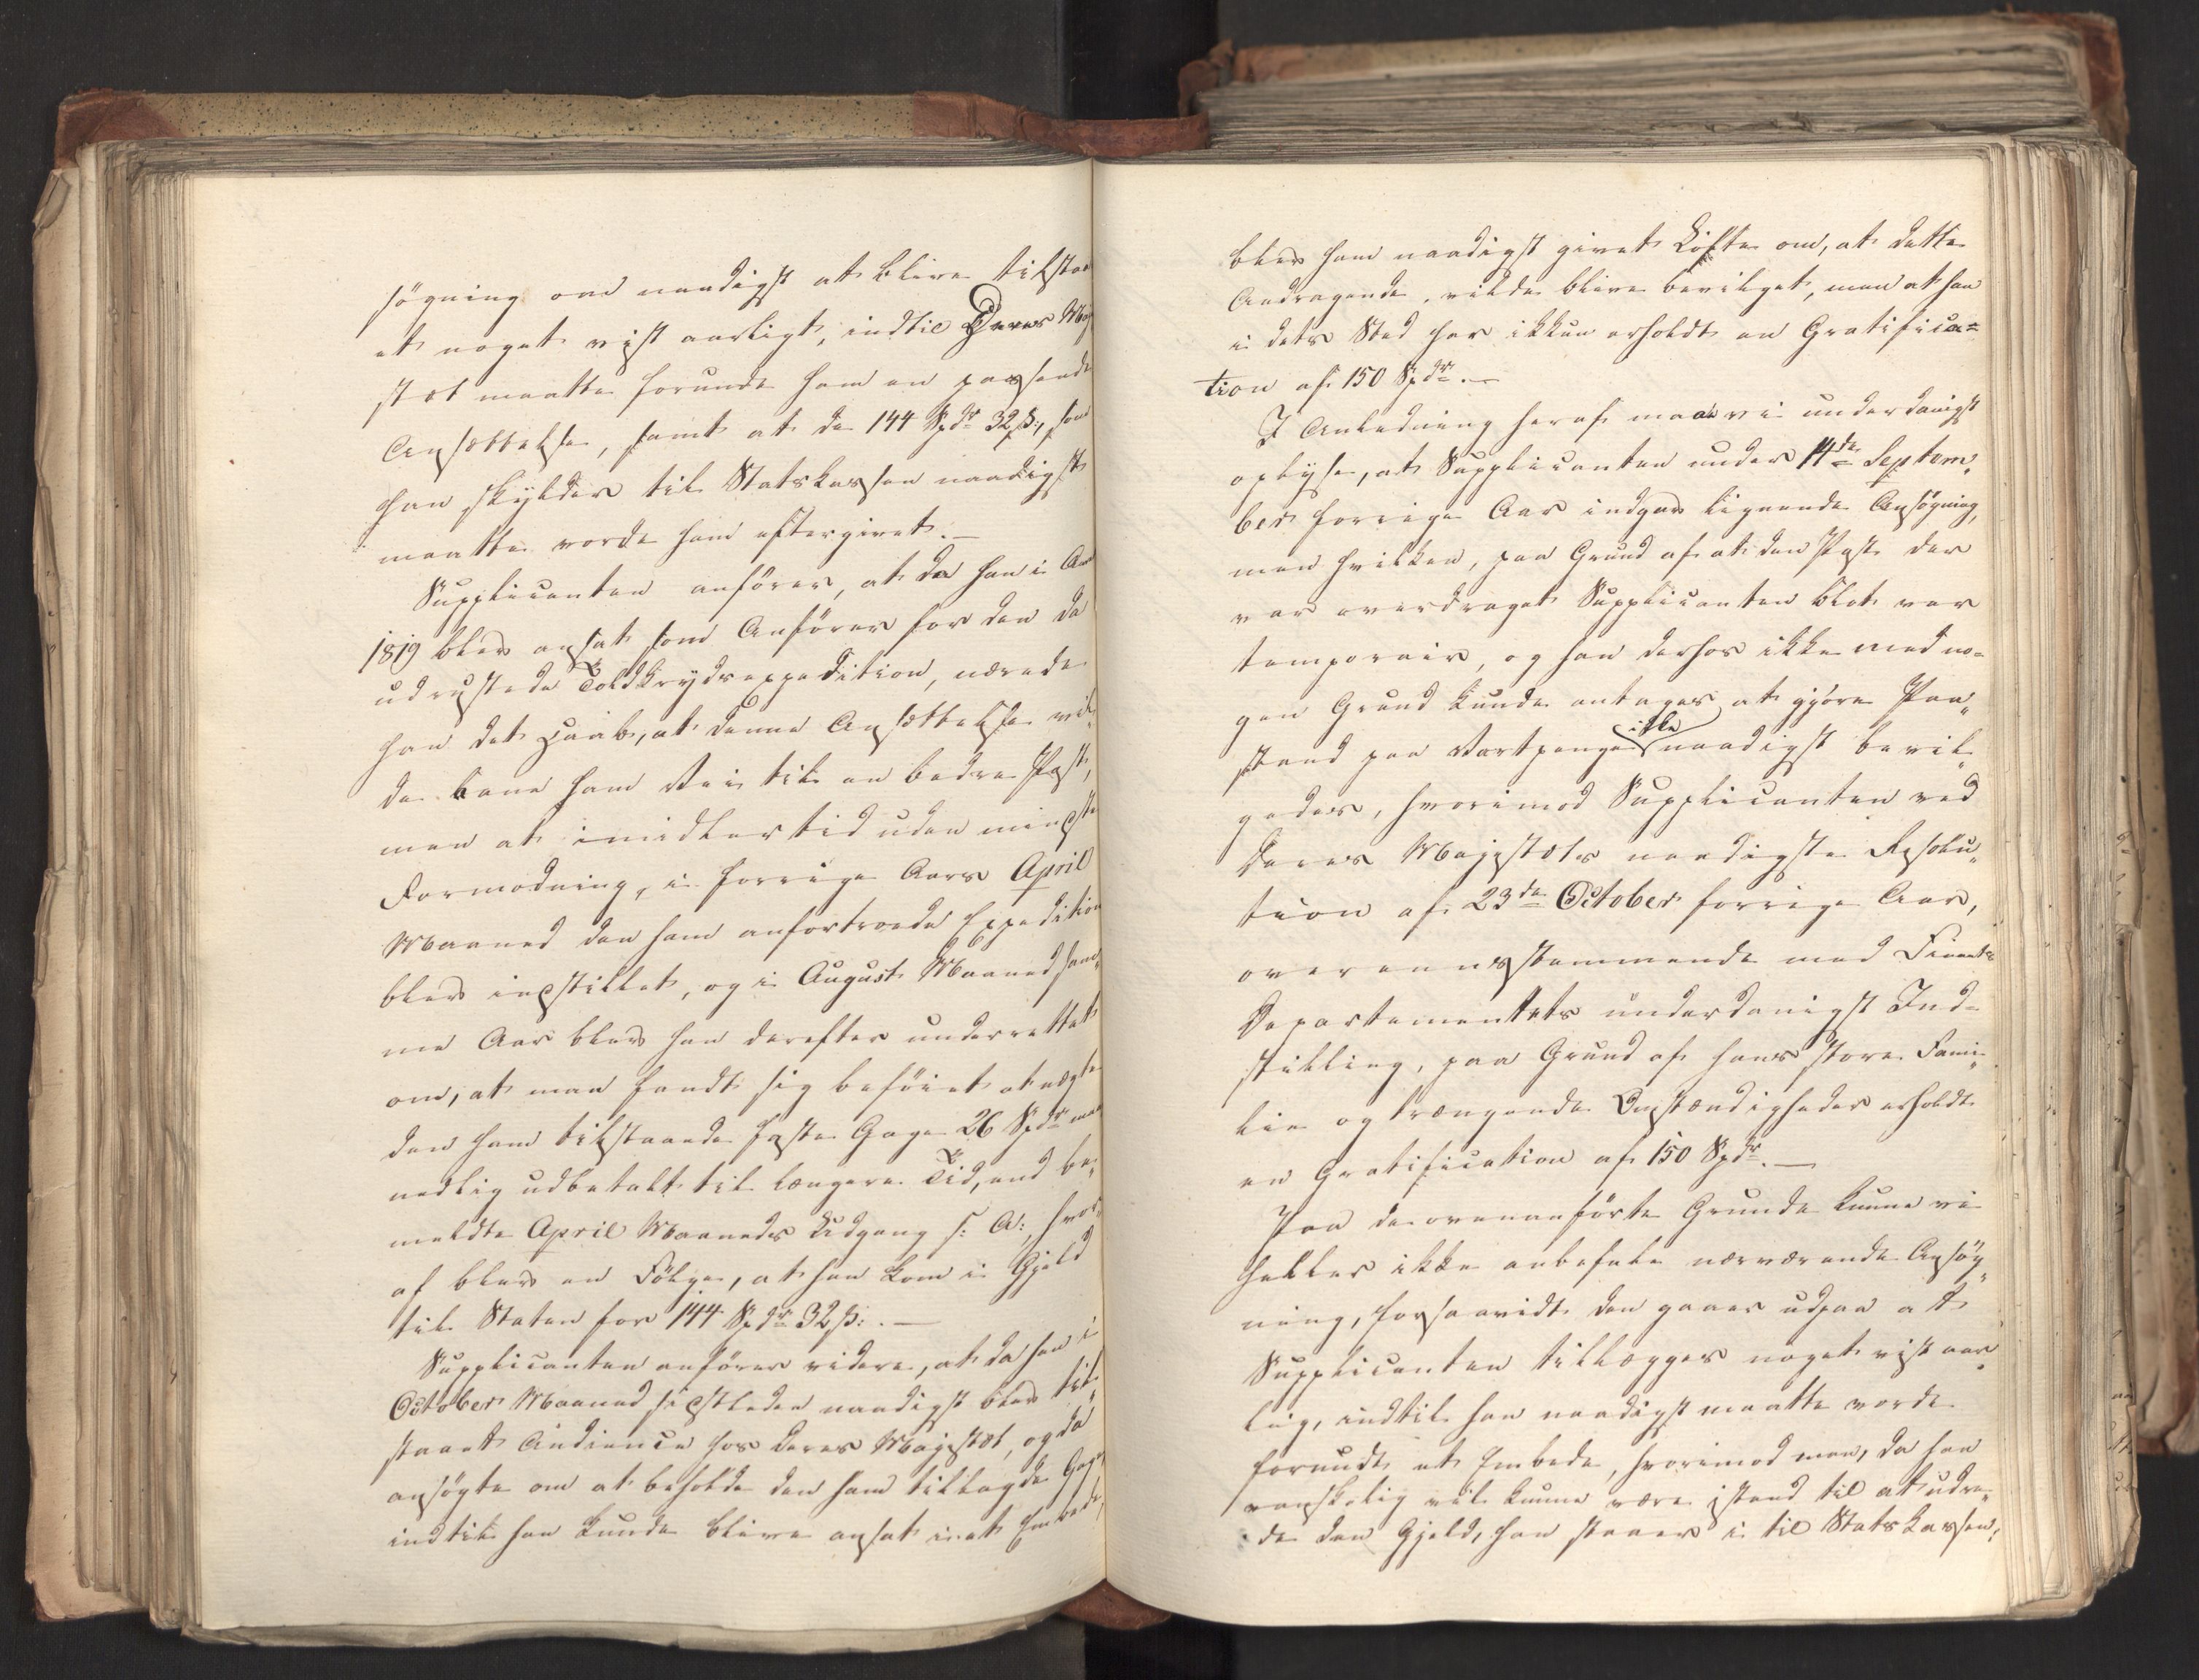 søgning om naadigst at blive tilstaa
et noget vist aarligt, indtil Deres Maj
stæt maatte forunde ham en passende
Ansættelse, samt at de 144 Spdr 32 ß, som
han skylder til Statskassen naadigst
maatte vorde ham eftergivet.
Supplicanten anfører, at da han i Aar
1819 blev ansat som Anfører for den da
udrustede Toldkrydsexpedition, nærede
han det Haab, at denne Ansættelse vil
de bane ham Vei til en bedre Post,
men at imidlertid uden mindste
Formodning, i forrige Aars April
Maaned den ham anfortroede Expedition
blev indstillet, og i August Maaned sam„
me Aar blev han derefter underrettet
om, at man fandt sig beføiet at nægte
den ham tilstaaede faste Gage 26 Spdr maa
nedlig udbetalt til længere Tid, end be„
meldte April Maaneds Udgang s: A:, hvor„
af blev en Følge, at han kom i Gjeld
til Staten for 144 Spdr 32 ß:.—
Supplicanten anfører videre, at da han i
October Maaned sidstleden naadigst blev til„
staaet Audience hos Deres Majestæt, og da
ansøgte om at beholde den ham tillagde Gage
indtil han kunde blive ansat i et Embede,
blev ham naadigst givet Løfte om, at dette
Andragende vilde blive bevilget, men at han
i dets Sted har ikkun erholdt en Gratifica=
tion af 150 Spdr.—
I Anledning heraf maae vi underdanigst
oplyse, at Supplicanten under 14de Septem„
ber forrige Aar indgav lignende Ansøgning,
men hvilken, paa Grund af at den Post der
var overdraget Supplicanten blot var
temporair, og han derhos ikke med no=
gen Grund kunde antages at gjøre Paa„
stand paa Vartpenge ikke naadigst bevil„
gedes, hvorimod Supplicanten ved
Deres Majestæts naadigste Resolu„
tion af 23de October forrige Aar,
overeensstemmende med Finants
Departementets underdanigst Ind=
stilling, paa Grund af hans store Fami„
lie og trængende Omstændigheder erholdt
en Gratification af 150 Spdr.—
Paa de ovenanførte Grunde kunne vi
heller ikke anbefale nærværende Ansøg„
ning, forsaavidt den gaaer ud paa at
Supplicanten tillægges noget vist aar„
lig, indtil han naadigst maatte vorde
forundt et Embede, hvorimod man, da han
vanskelig vil kunne være istand til at udre„
de den Gjeld, han staaer i til Statskassen,